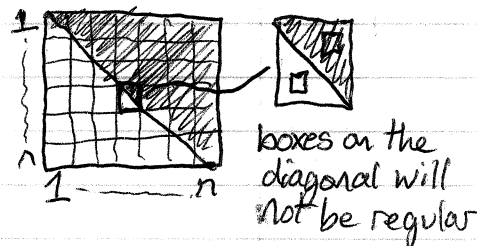 1
n
1 n
boxes on the
diagonal will
not be regular